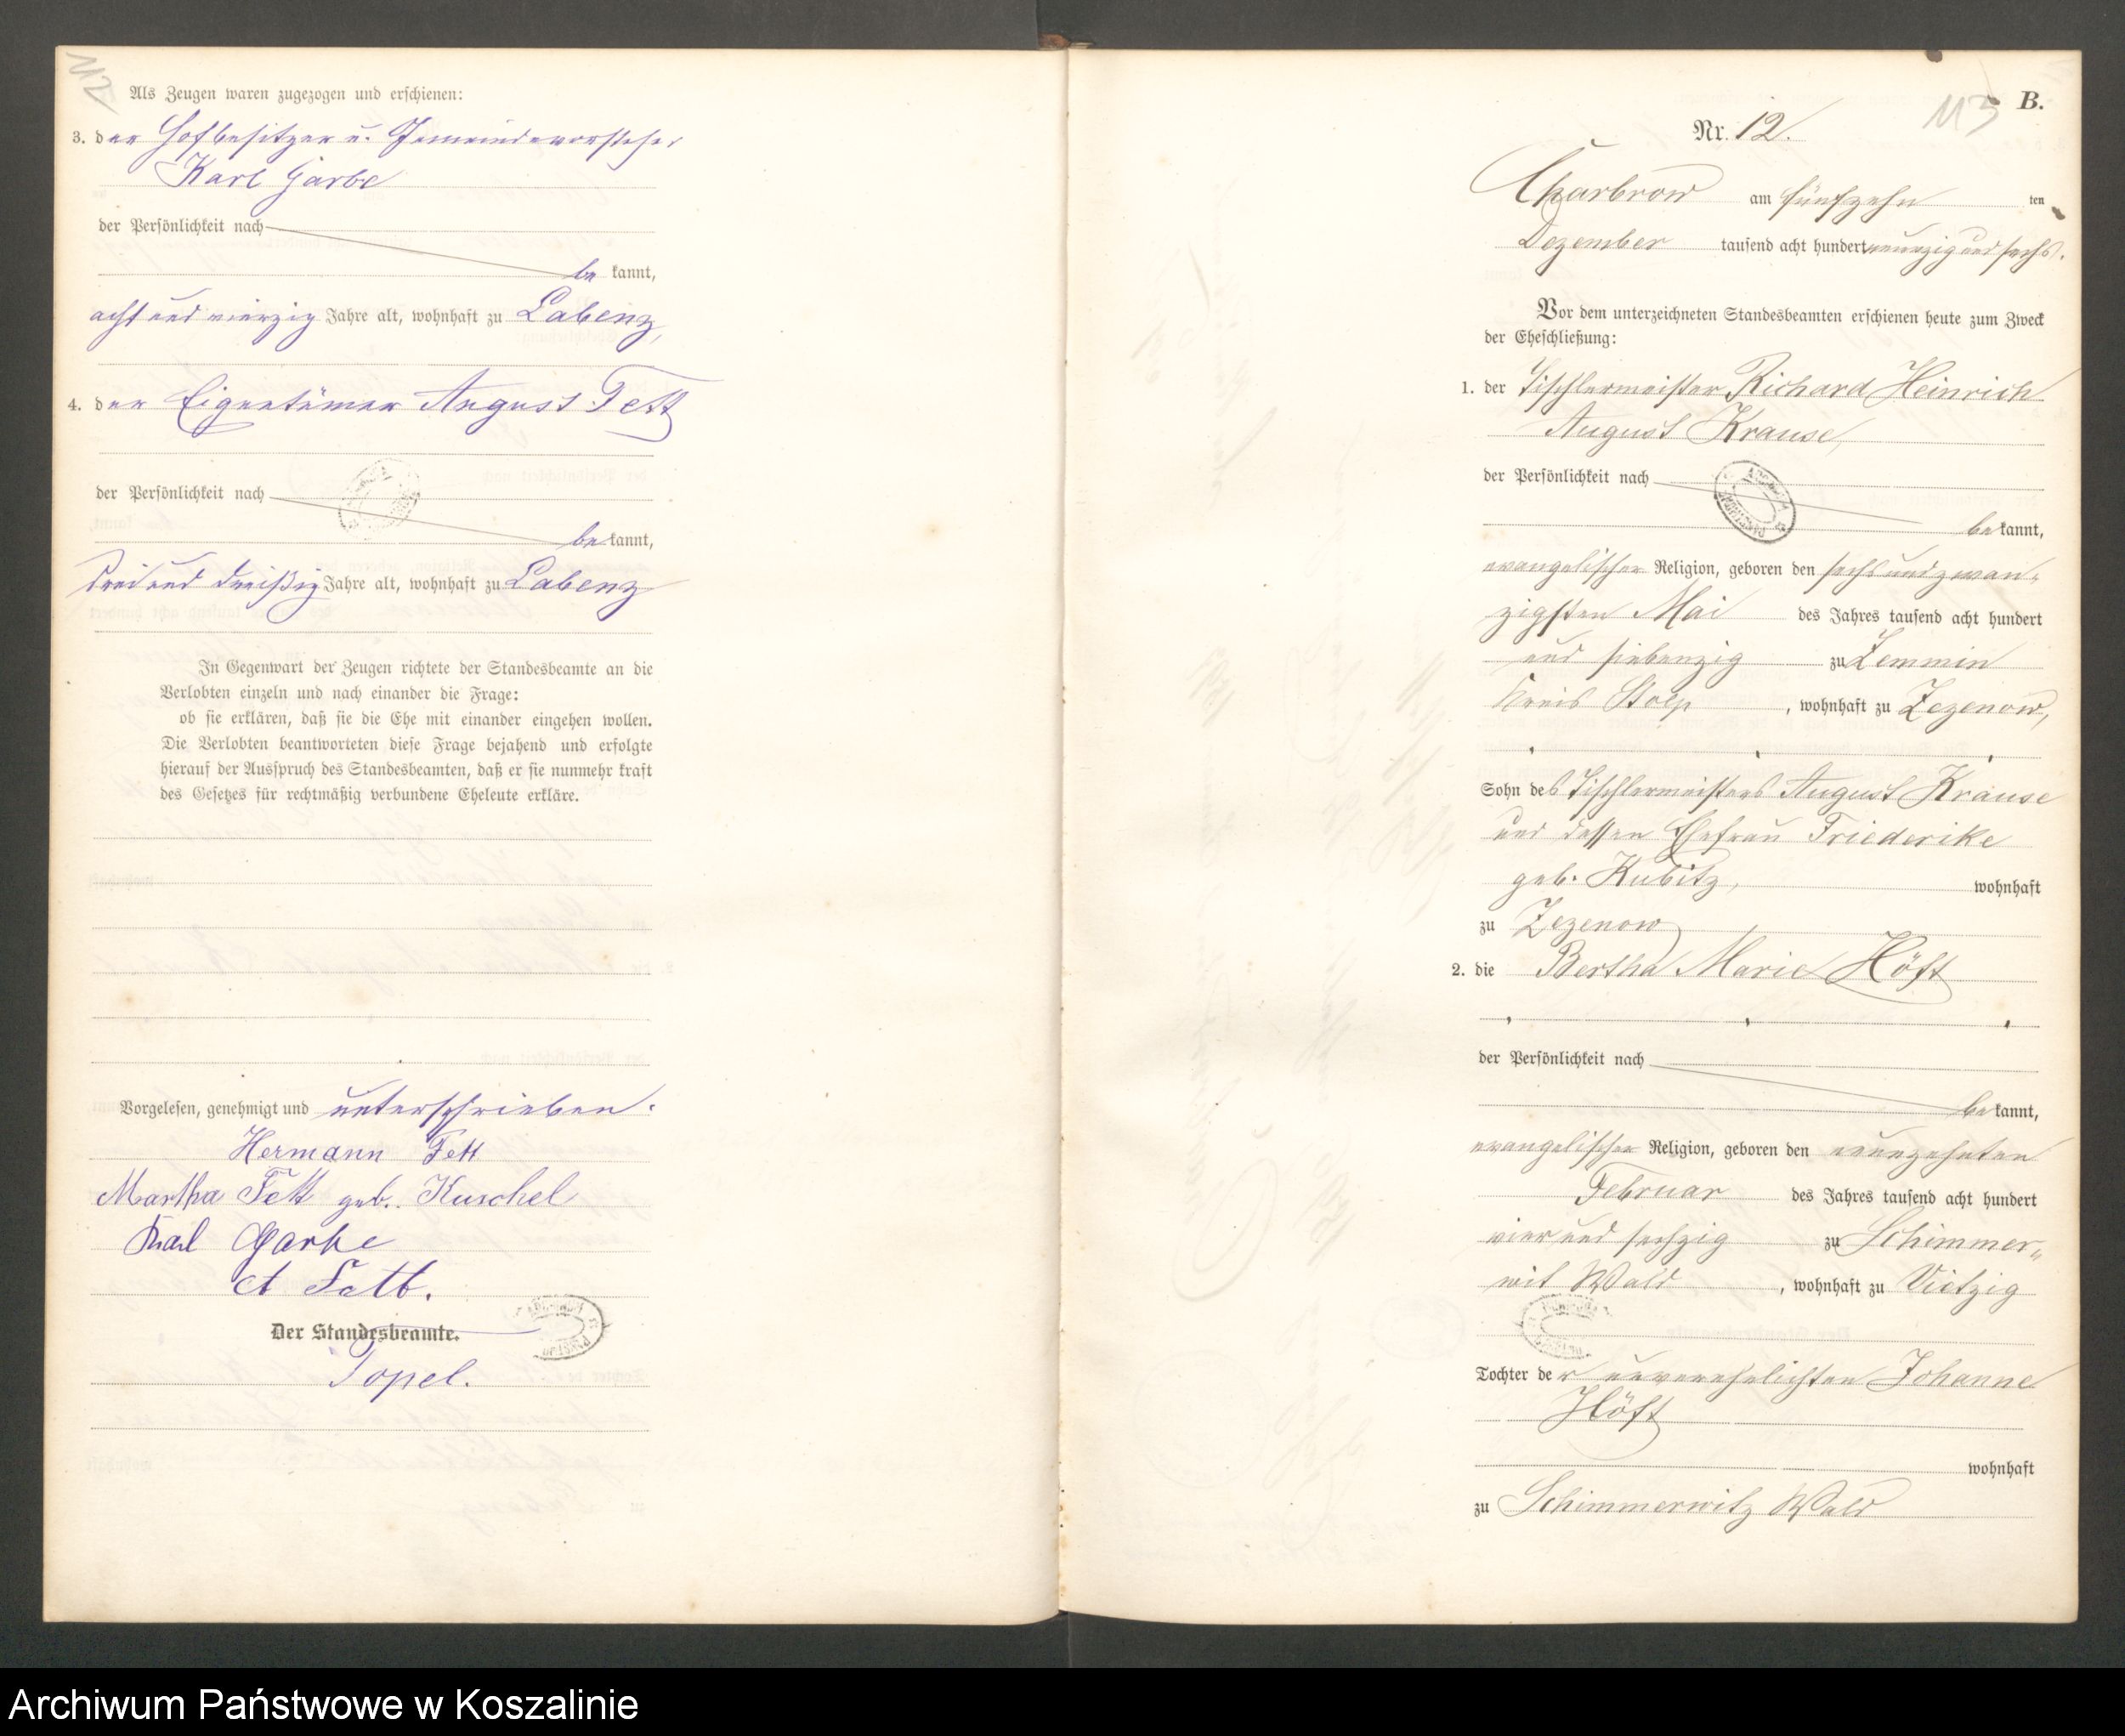 112
Als Zeugen waren zugezogen und erschienen:
3. der Hofbesitzer u. Gemeindevorsteher
Karl Garbe
der Persönlichkeit nach
be kannt,
acht und vierzig Jahre alt, wohnhaft zu Labenz,
4. der Eigentümer August Fett
der Persönlichkeit nach
be kannt,
drei und dreißig Jahre alt, wohnhaft zu Labenz
In Gegenwart der Zeugen richtete der Standesbeamte an die
Verlobten einzeln und nach einander die Frage:
ob sie erklären, daß sie die Ehe mit einander eingehen wollen.
Die Verlobten beantworteten diese Frage bejahend und erfolgte
hierauf der Ausspruch des Standesbeamten, daß er sie nunmehr kraft
des Gesetzes für rechtmäßig verbundene Eheleute erkläre.
Vorgelesen, genehmigt und unterschrieben.
Hermann Fett
Martha Fett geb. Kuschel
Karl Garbe
A Fett.
Der Standesbeamte.
Topel.
113
B.
Nr. 12.
Charbrow am fünfzehn ten
Dezember tausend acht hundert neunzig und sechs.
Vor dem unterzeichneten Standesbeamten erschienen heute zum Zweck
der Eheschließung:
1. der Tischlermeister Richard Heinrich
August Krause,
der Persönlichkeit nach
be kannt,
evangelischer Religion, geboren den sechs und zwan-
zigsten Mai des Jahres tausend acht hundert
und siebenzig zu Zemmin
Kreis Stolp, wohnhaft zu Zezenow,
Sohn des Tischlermeisters August Krause
und dessen Ehefrau Friederike
geb. Kubitz, wohnhaft
zu Zezenow
2. die Bertha Marie Höft
der Persönlichkeit nach
be kannt,
evangelischer Religion, geboren den neunzehnten
Februar des Jahres tausend acht hundert
vier und sechzig zu Schimmer-
wit Wald, wohnhaft zu Vietzig
Tochter der unverehelichten Johanne
Höft
wohnhaft
zu Schimmerwitz Wald
Archiwum Państwowe w Koszalinie